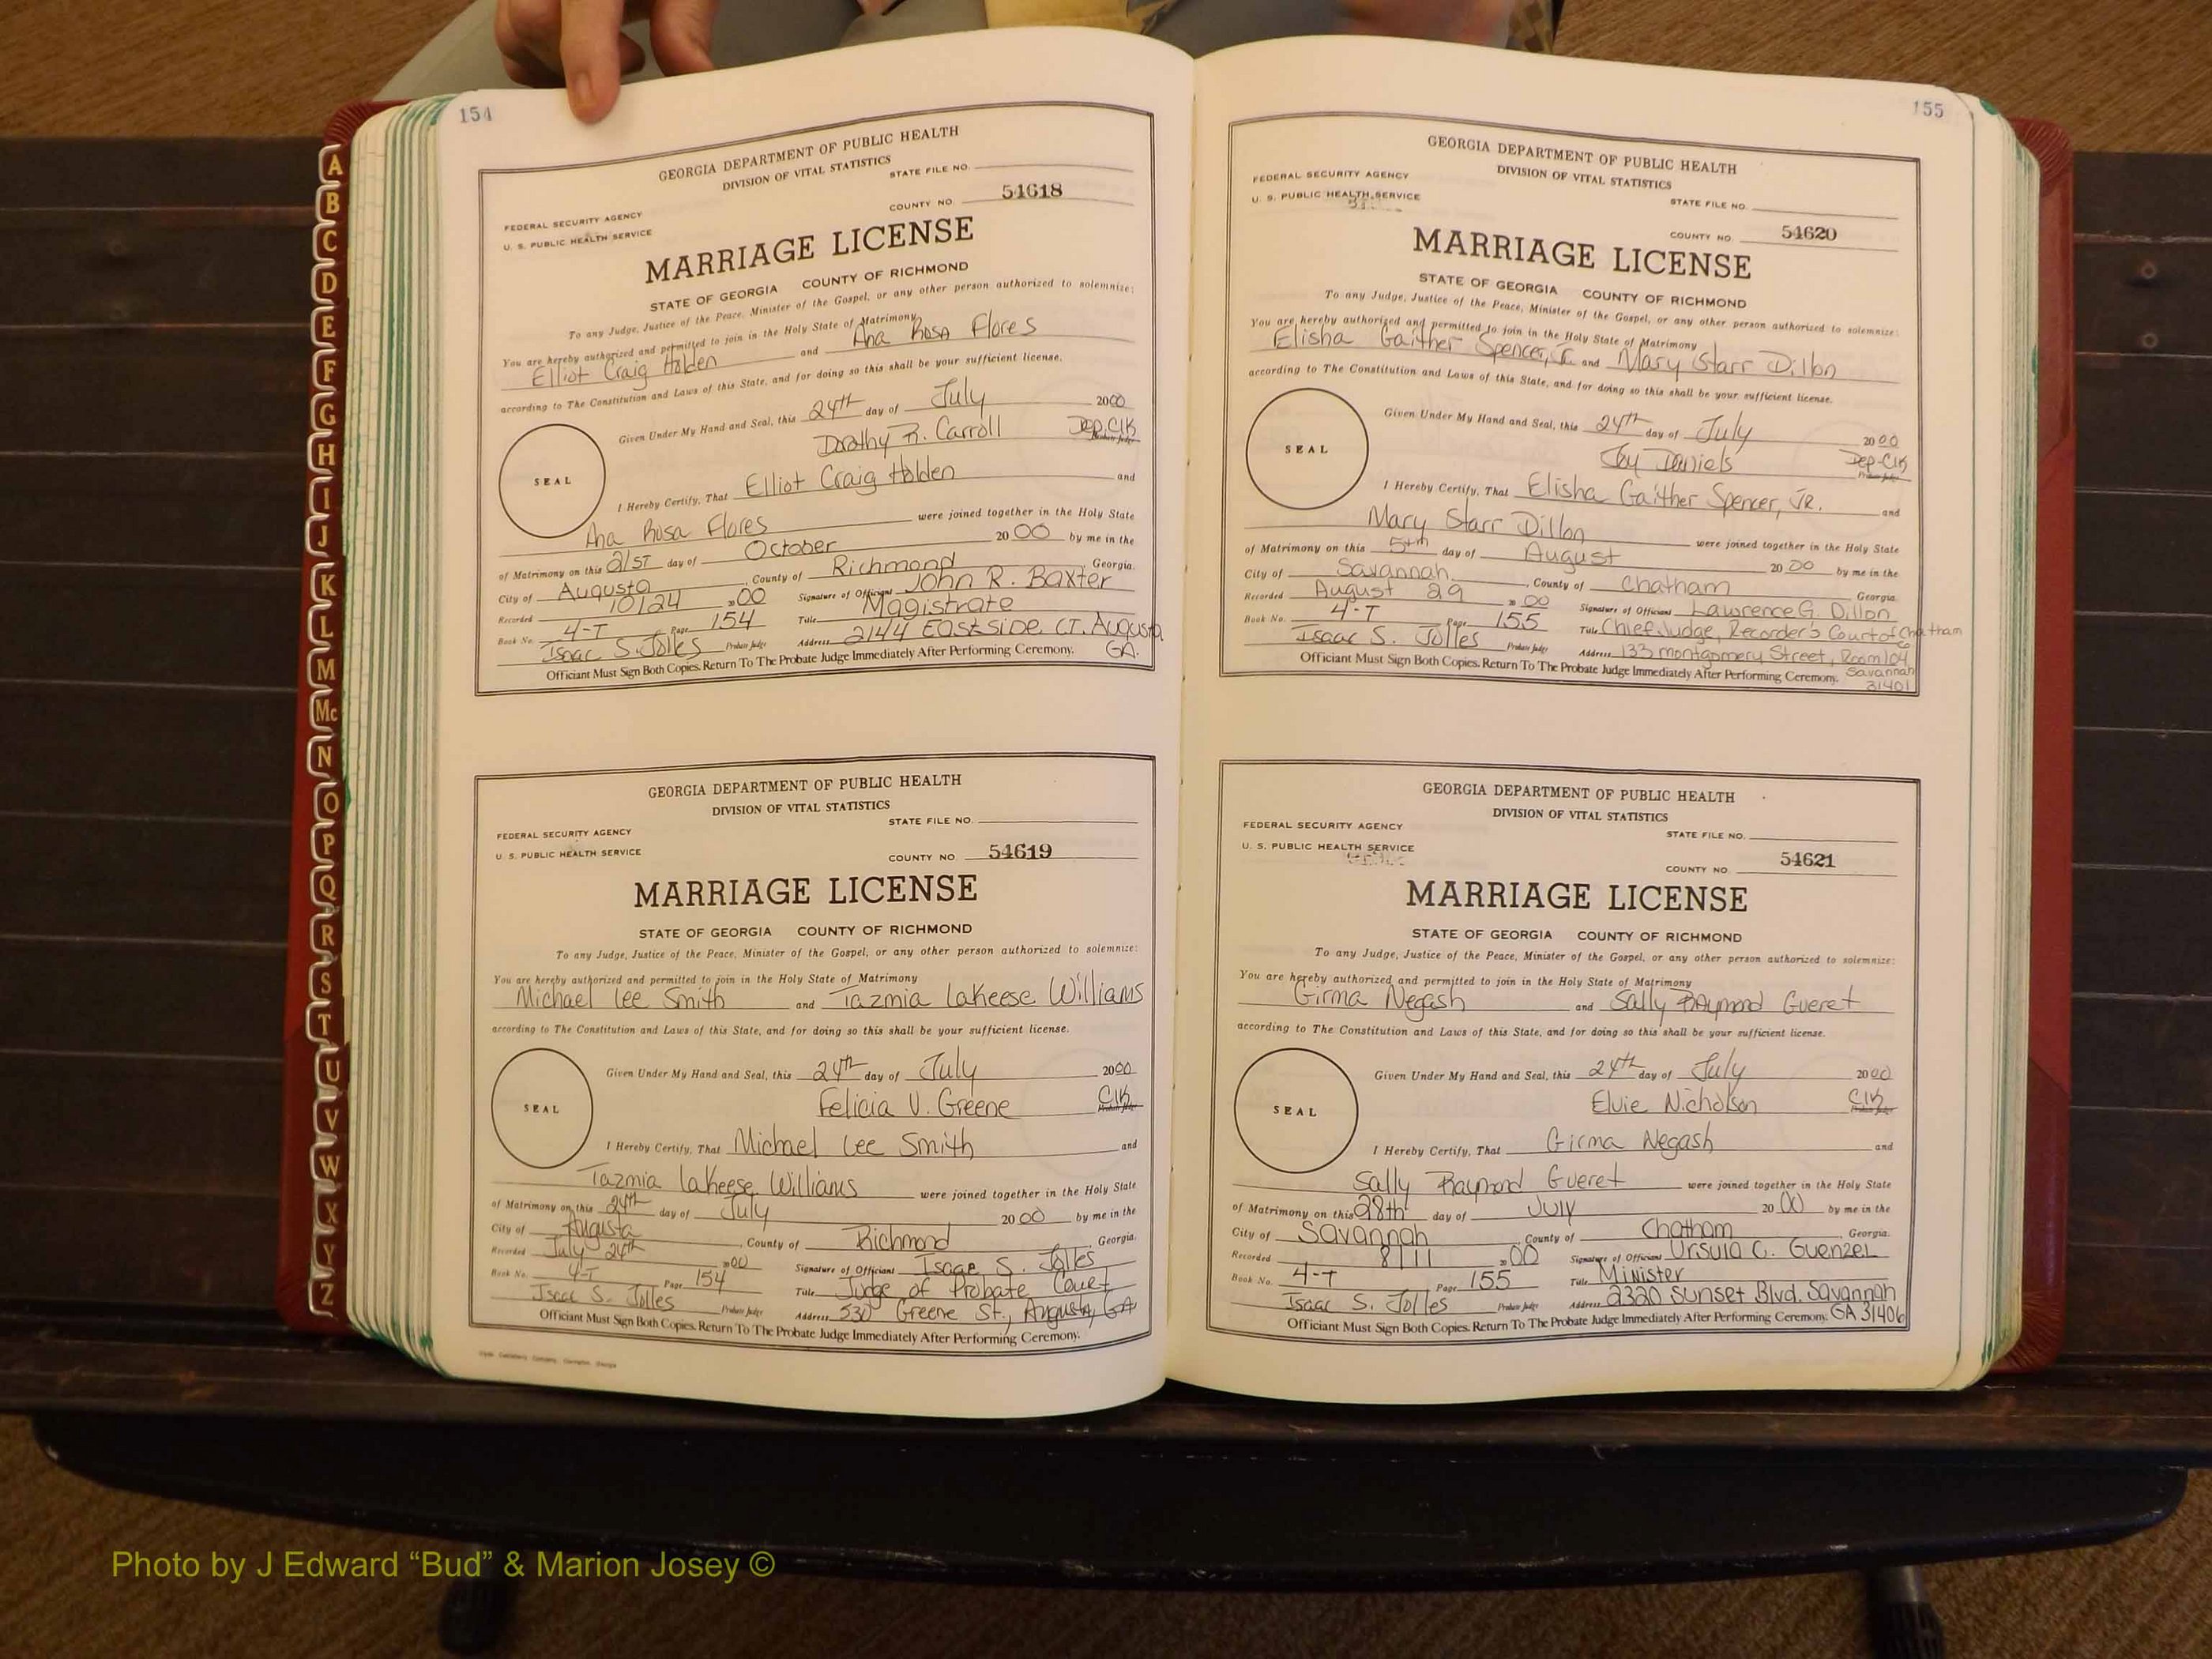 154
GEORGIA DEPARTMENT OF PUBLIC HEALTH
DIVISION OF VITAL STATISTICS
STATE FILE NO.
FEDERAL SECURITY AGENCY
U. S. PUBLIC HEALTH SERVICE
COUNTY NO. 54618
MARRIAGE LICENSE
STATE OF GEORGIA COUNTY OF RICHMOND
To any Judge, Justice of the Peace, Minister of the Gospel, or any other person authorized to solemnize:
You are hereby authorized and permitted to join in the Holy State of Matrimony
Elliot Craig Holden and Ana Rosa Flores
according to The Constitution and Laws of this State, and for doing so this shall be your sufficient license.
Given Under My Hand and Seal, this 24th day of July 2000
Dorothy R. Carroll Dep. Clk Probate Judge
SEAL
I Hereby Certify, That Elliot Craig Holden and
Ana Rosa Flores were joined together in the Holy State
of Matrimony on this 21st day of October 20 00 by me in the
City of Augusta, County of Richmond Georgia.
Recorded 10/24 2000 Signature of Officiant John R. Baxter
Book No. 4-T Page 154 Title Magistrate
Isaac S. Jolles Probate Judge Address 2144 Eastside Ct. Augusta GA.
Officiant Must Sign Both Copies. Return To The Probate Judge Immediately After Performing Ceremony.
GEORGIA DEPARTMENT OF PUBLIC HEALTH
DIVISION OF VITAL STATISTICS
STATE FILE NO.
FEDERAL SECURITY AGENCY
U. S. PUBLIC HEALTH SERVICE
COUNTY NO 54619
MARRIAGE LICENSE
STATE OF GEORGIA COUNTY OF RICHMOND
To any Judge, Justice of the Peace, Minister of the Gospel, or any other person authorized to solemnize:
You are hereby authorized and permitted to join in the Holy State of Matrimony
Michael Lee Smith and Tazmia Lakeese Williams
according to The Constitution and Laws of this State, and for doing so this shall be your sufficient license.
Given Under My Hand and Seal, this 24th day of July 2000
Felicia V. Greene Clk Probate Judge
SEAL
I Hereby Certify, That Michael Lee Smith and
Tazmia Lakeese Williams were joined together in the Holy State
of Matrimony on this 24th day of July 20 00 by me in the
City of Augusta, County of Richmond Georgia.
Recorded July 24th 2000 Signature of Officiant Isaac S. Jolles
Book No. 4-T Page 154 Title Judge of Probate Court
Isaac S. Jolles Probate Judge Address 530 Greene St., Augusta, GA
Officiant Must Sign Both Copies. Return To The Probate Judge Immediately After Performing Ceremony.
155
GEORGIA DEPARTMENT OF PUBLIC HEALTH
DIVISION OF VITAL STATISTICS
FEDERAL SECURITY AGENCY
U. S. PUBLIC HEALTH SERVICE
STATE FILE NO.
COUNTY NO. 54620
MARRIAGE LICENSE
STATE OF GEORGIA COUNTY OF RICHMOND
To any Judge, Justice of the Peace, Minister of the Gospel, or any other person authorized to solemnize:
You are hereby authorized and permitted to join in the Holy State of Matrimony
Elisha Gaither Spencer, Jr. and Mary Starr Dillon
according to the Constitution and Laws of this State, and for doing so this shall be your sufficient license.
Given Under My Hand and Seal, this 24th day of July 2000
Joy Daniels Dep-Clk Probate Judge
SEAL
I Hereby Certify, That Elisha Gaither Spencer, JR. and
Mary Starr Dillon were joined together in the Holy State
of Matrimony on this 5th day of August 20 00 by me in the
City of Savannah, County of Chatham Georgia
Recorded August 29 2000 Signature of Officiant Lawrence G. Dillon
Book No. 4-T Page 155 Title Chief Judge, Recorder's Court of Chatham Co
Isaac S. Jolles Probate Judge Address 133 Montgomery Street, Room 104 Savannah 31401
Officiant Must Sign Both Copies. Return To The Probate Judge Immediately After Performing Ceremony.
GEORGIA DEPARTMENT OF PUBLIC HEALTH
DIVISION OF VITAL STATISTICS
FEDERAL SECURITY AGENCY
STATE FILE NO.
U. S. PUBLIC HEALTH SERVICE
COUNTY NO. 54621
MARRIAGE LICENSE
STATE OF GEORGIA COUNTY OF RICHMOND
To any Judge, Justice of the Peace, Minister of the Gospel, or any other person authorized to solemnize:
You are hereby authorized and permitted to join in the Holy State of Matrimony
Girma Negash and Sally Raymond Gueret
according to The Constitution and Laws of this State, and for doing so this shall be your sufficient license.
Given Under My Hand and Seal, this 24th day of July 2000
Elvie Nicholson Clk Probate Judge
SEAL
I Hereby Certify, That Girma Negash and
Sally Raymond Gueret were joined together in the Holy State
of Matrimony on this 28th day of July 20 00 by me in the
City of Savannah, County of Chatham, Georgia.
Recorded 8/11 2000 Signature of Officiant Ursula C. Guenzel
Book No. 4-T Page 155 Title Minister
Isaac S. Jolles Probate Judge Address 2320 Sunset Blvd. Savannah GA 31406
Officiant Must Sign Both Copies. Return To The Probate Judge Immediately After Performing Ceremony.
A
B
C
D
E
F
G
H
I
J
K
L
M
Mc
N
O
P
Q
R
S
T
U
V
W
X
Y
Z
Photo by J Edward “Bud” & Marion Josey ©